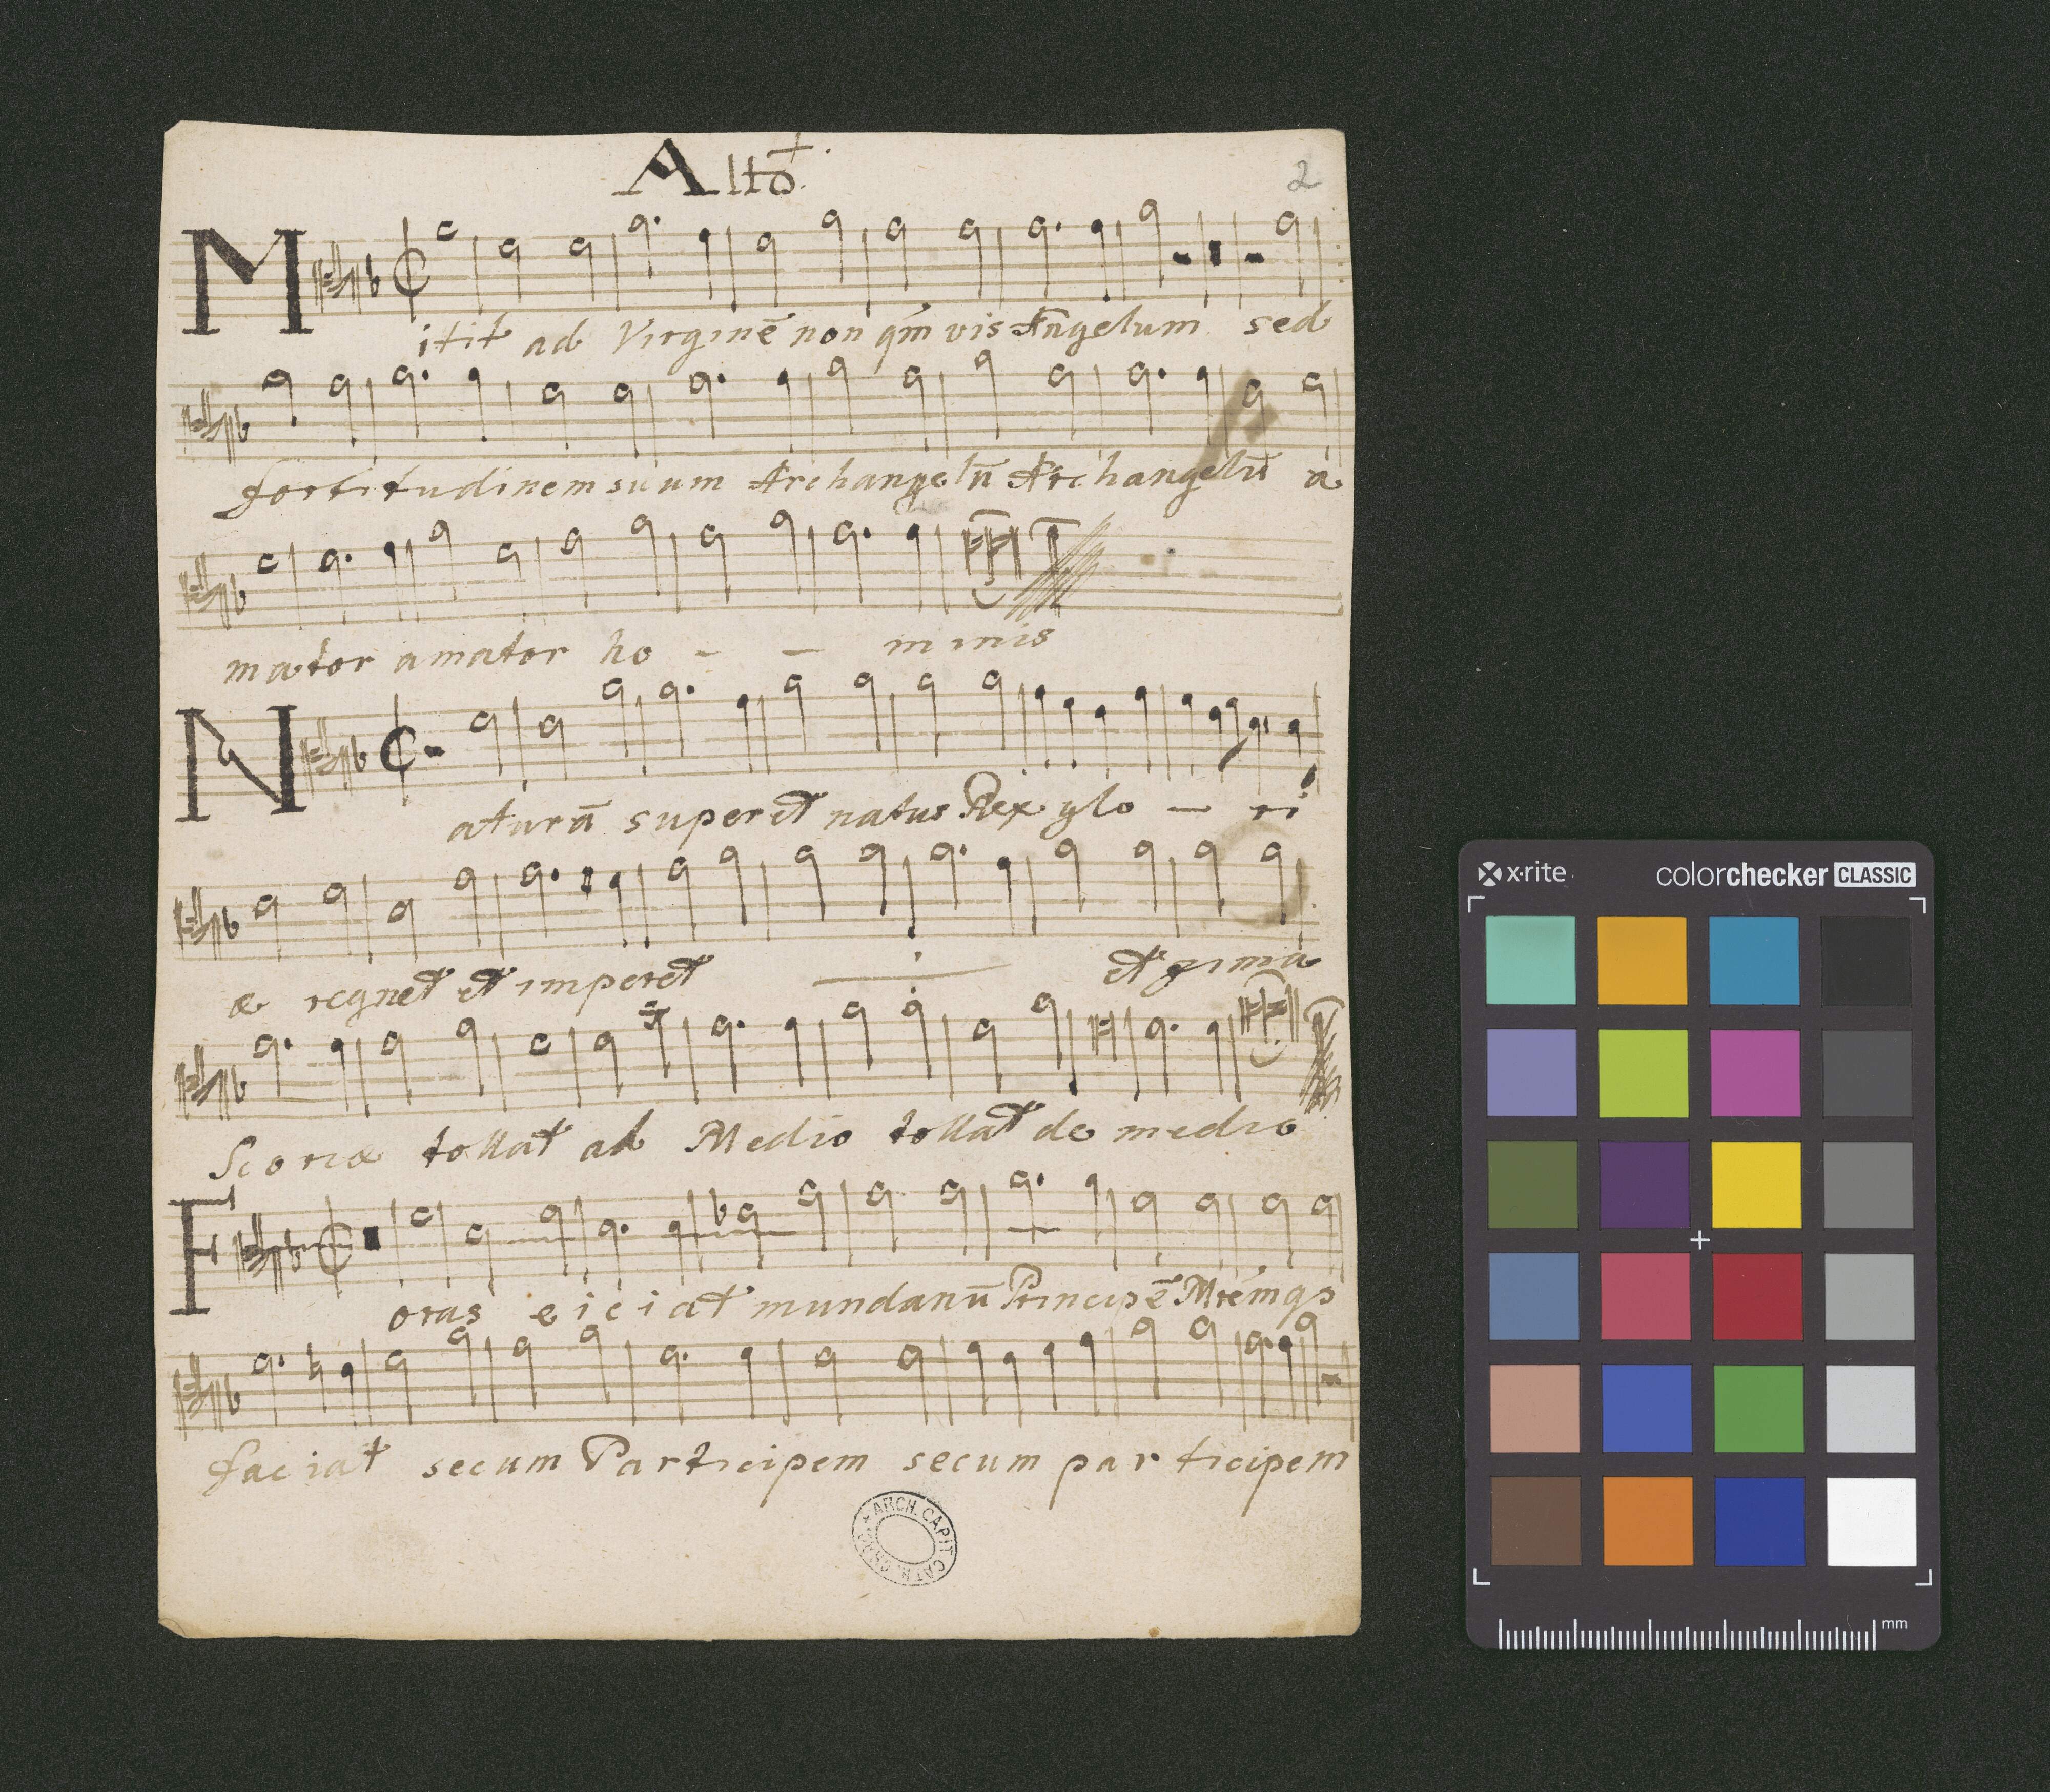 Alto.
2
Mitit ad Virginē non qm vis Angelum sed
fortitudinem suum Archangelū Archangelū a
mator amator ho - - minis
Naturā superet natus Rex glo - ri
æ regnet et imperet et zima
Scoriæ tollat ad Medio tollat de medio
Foras eiciat mundanū Principē Mremqs
faciat secum Participem secum participem
ARCH. CAPIT. CATH. CRAC.
x·rite
colorchecker CLASSIC
mm